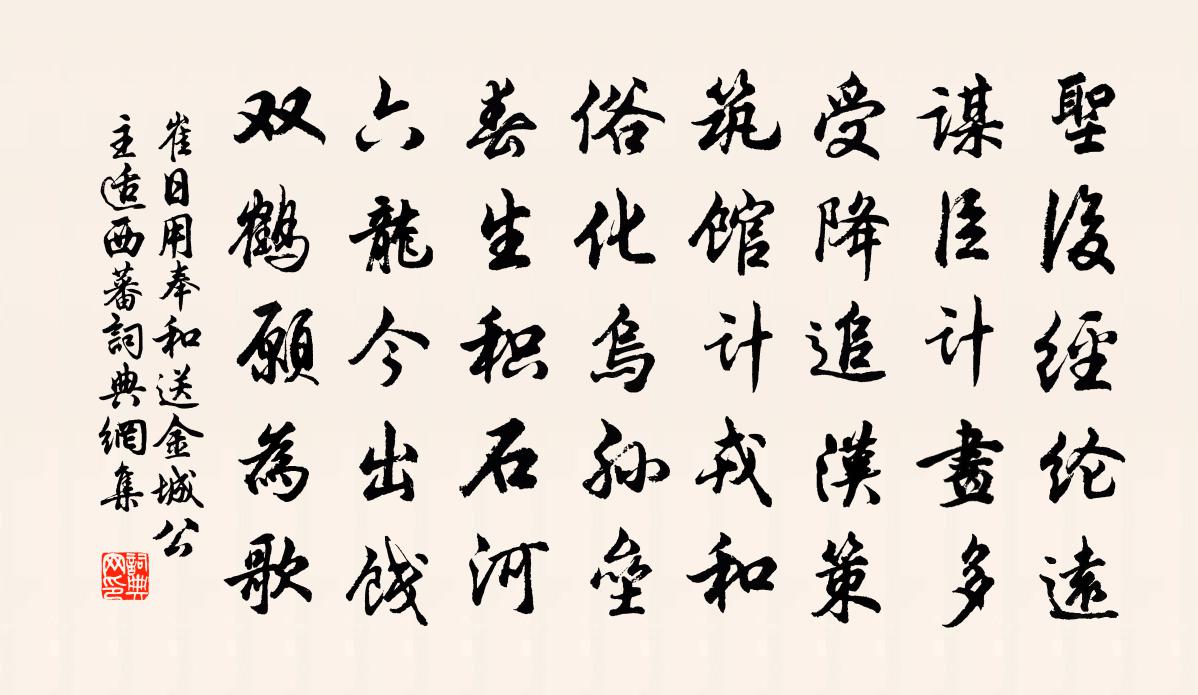 聖後經纶遠
謀臣計畫多
受降追漢策
筑馆計戎和
俗化烏孙壘
春生积石河
六龍今出饯
双鶴願為歌
崔日用奉和送金城公
主适西蕃詞典網集
詞典网印